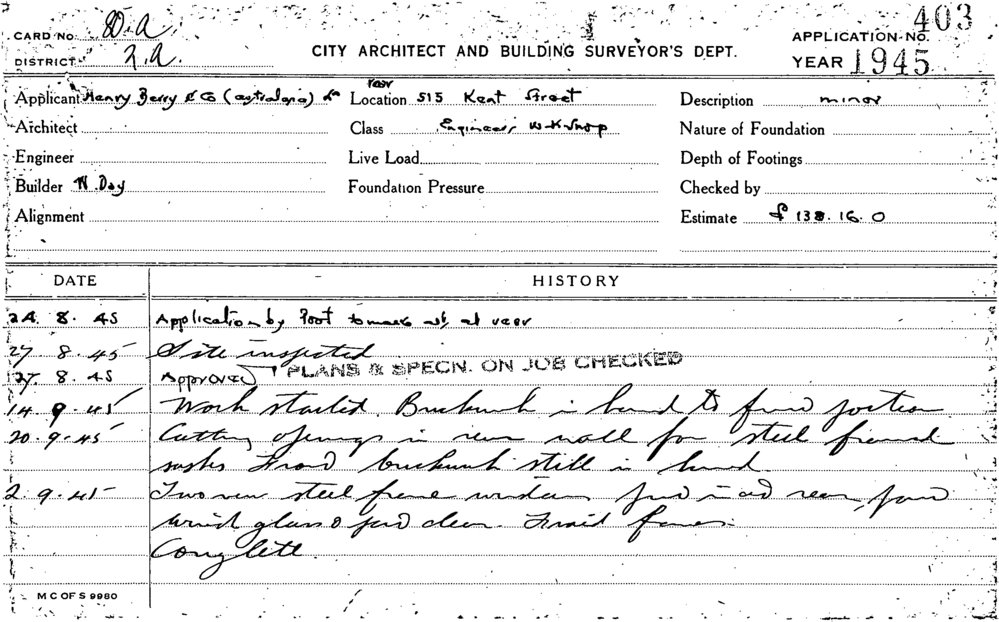 CARD No. D.A
DISTRICT 2.A.
CITY ARCHITECT AND BUILDING SURVEYOR'S DEPT.
APPLICATION No. 403
YEAR 1945
Applicant Henry Berry & Co (australasia) Location rear 515 Kent Street Description minor
Architect Class Engineers W-K-Shop Nature of Foundation
Engineer Live Load Depth of Footings
Builder W. Day Foundation Pressure Checked by
Alignment Estimate £ 138.16.0
DATE HISTORY
24. 8. 45 Application by Post to make at rear
27. 8. 45 Site inspected
27. 8. 45 Approved PLANS & SPECN. ON JOB CHECKED
14. 9. 45 Work started. Brickwork in hand to portion
20. 9. 45 Cutting openings in rear wall for steel framed
sashes brickwork still in hand.
2. 9. 45 Two new steel frame windows rear,
glass
Complete.
M C OF S 9980